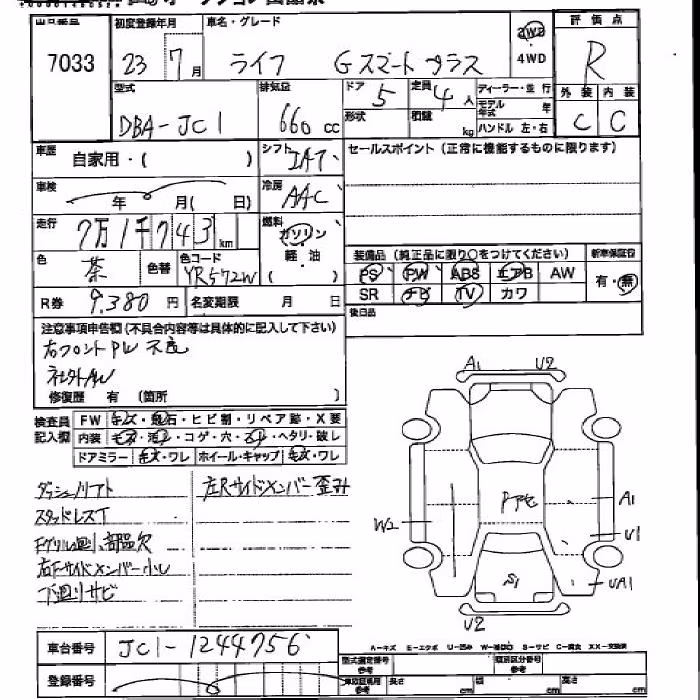 出品番号 初度登録年月 車名・グレード 評価点
7033 23 7月 ライフ Gスマートプラス 2WD 4WD R
型式 排気量 ドア 定員 ディーラー・並行 外装 内装
DBA-JC1 660 cc 5 4人 モデル年式 年 C C
形状 積載 kg ハンドル 左・右
車歴 自家用・( ) シフト IAT セールスポイント(正常に機能するものに限ります)
車検 年 月( 日) 冷房 AAC
走行 7万1千743km 燃料 ガソリン 軽・油 ( )
色 茶 色替 色コード YR572W 装備品(純正品に限り○をつけてください) 新車保証書
PS PW ABS エアB AW 有・無
R券 9,380円 名変期限 月 日 SR ナビ TV カワ
後日品
注意事項申告欄(不具合内容等は具体的に記入して下さい)
右フロントPW不良
社外AW
修復歴 有 (箇所 )
検査員記入欄 FW キズ・飛石・ヒビ割・リペア跡・X要
内装 キズ・汚レ・コゲ・穴・スレ・ヘタリ・破レ
ドアミラー キズ・ワレ ホイール・キャップ キズ・ワレ
ダッシュリフト 左Rサイドメンバー歪み
スタッドレスT
Fグリル
右Fサイドメンバー小凹
下廻りサビ
A1 U2
Pアセ
A1
W2 U1
S1 UA1
U2
A-キズ E-エクボ U-凹み W-補修跡 S-サビ C-腐食 XX-交換済
車台番号 JC1-1244756 型式指定番号 参考 類別区分番号 参考
登録番号 車庫証明用 参考 長さ cm 幅 cm 高さ cm